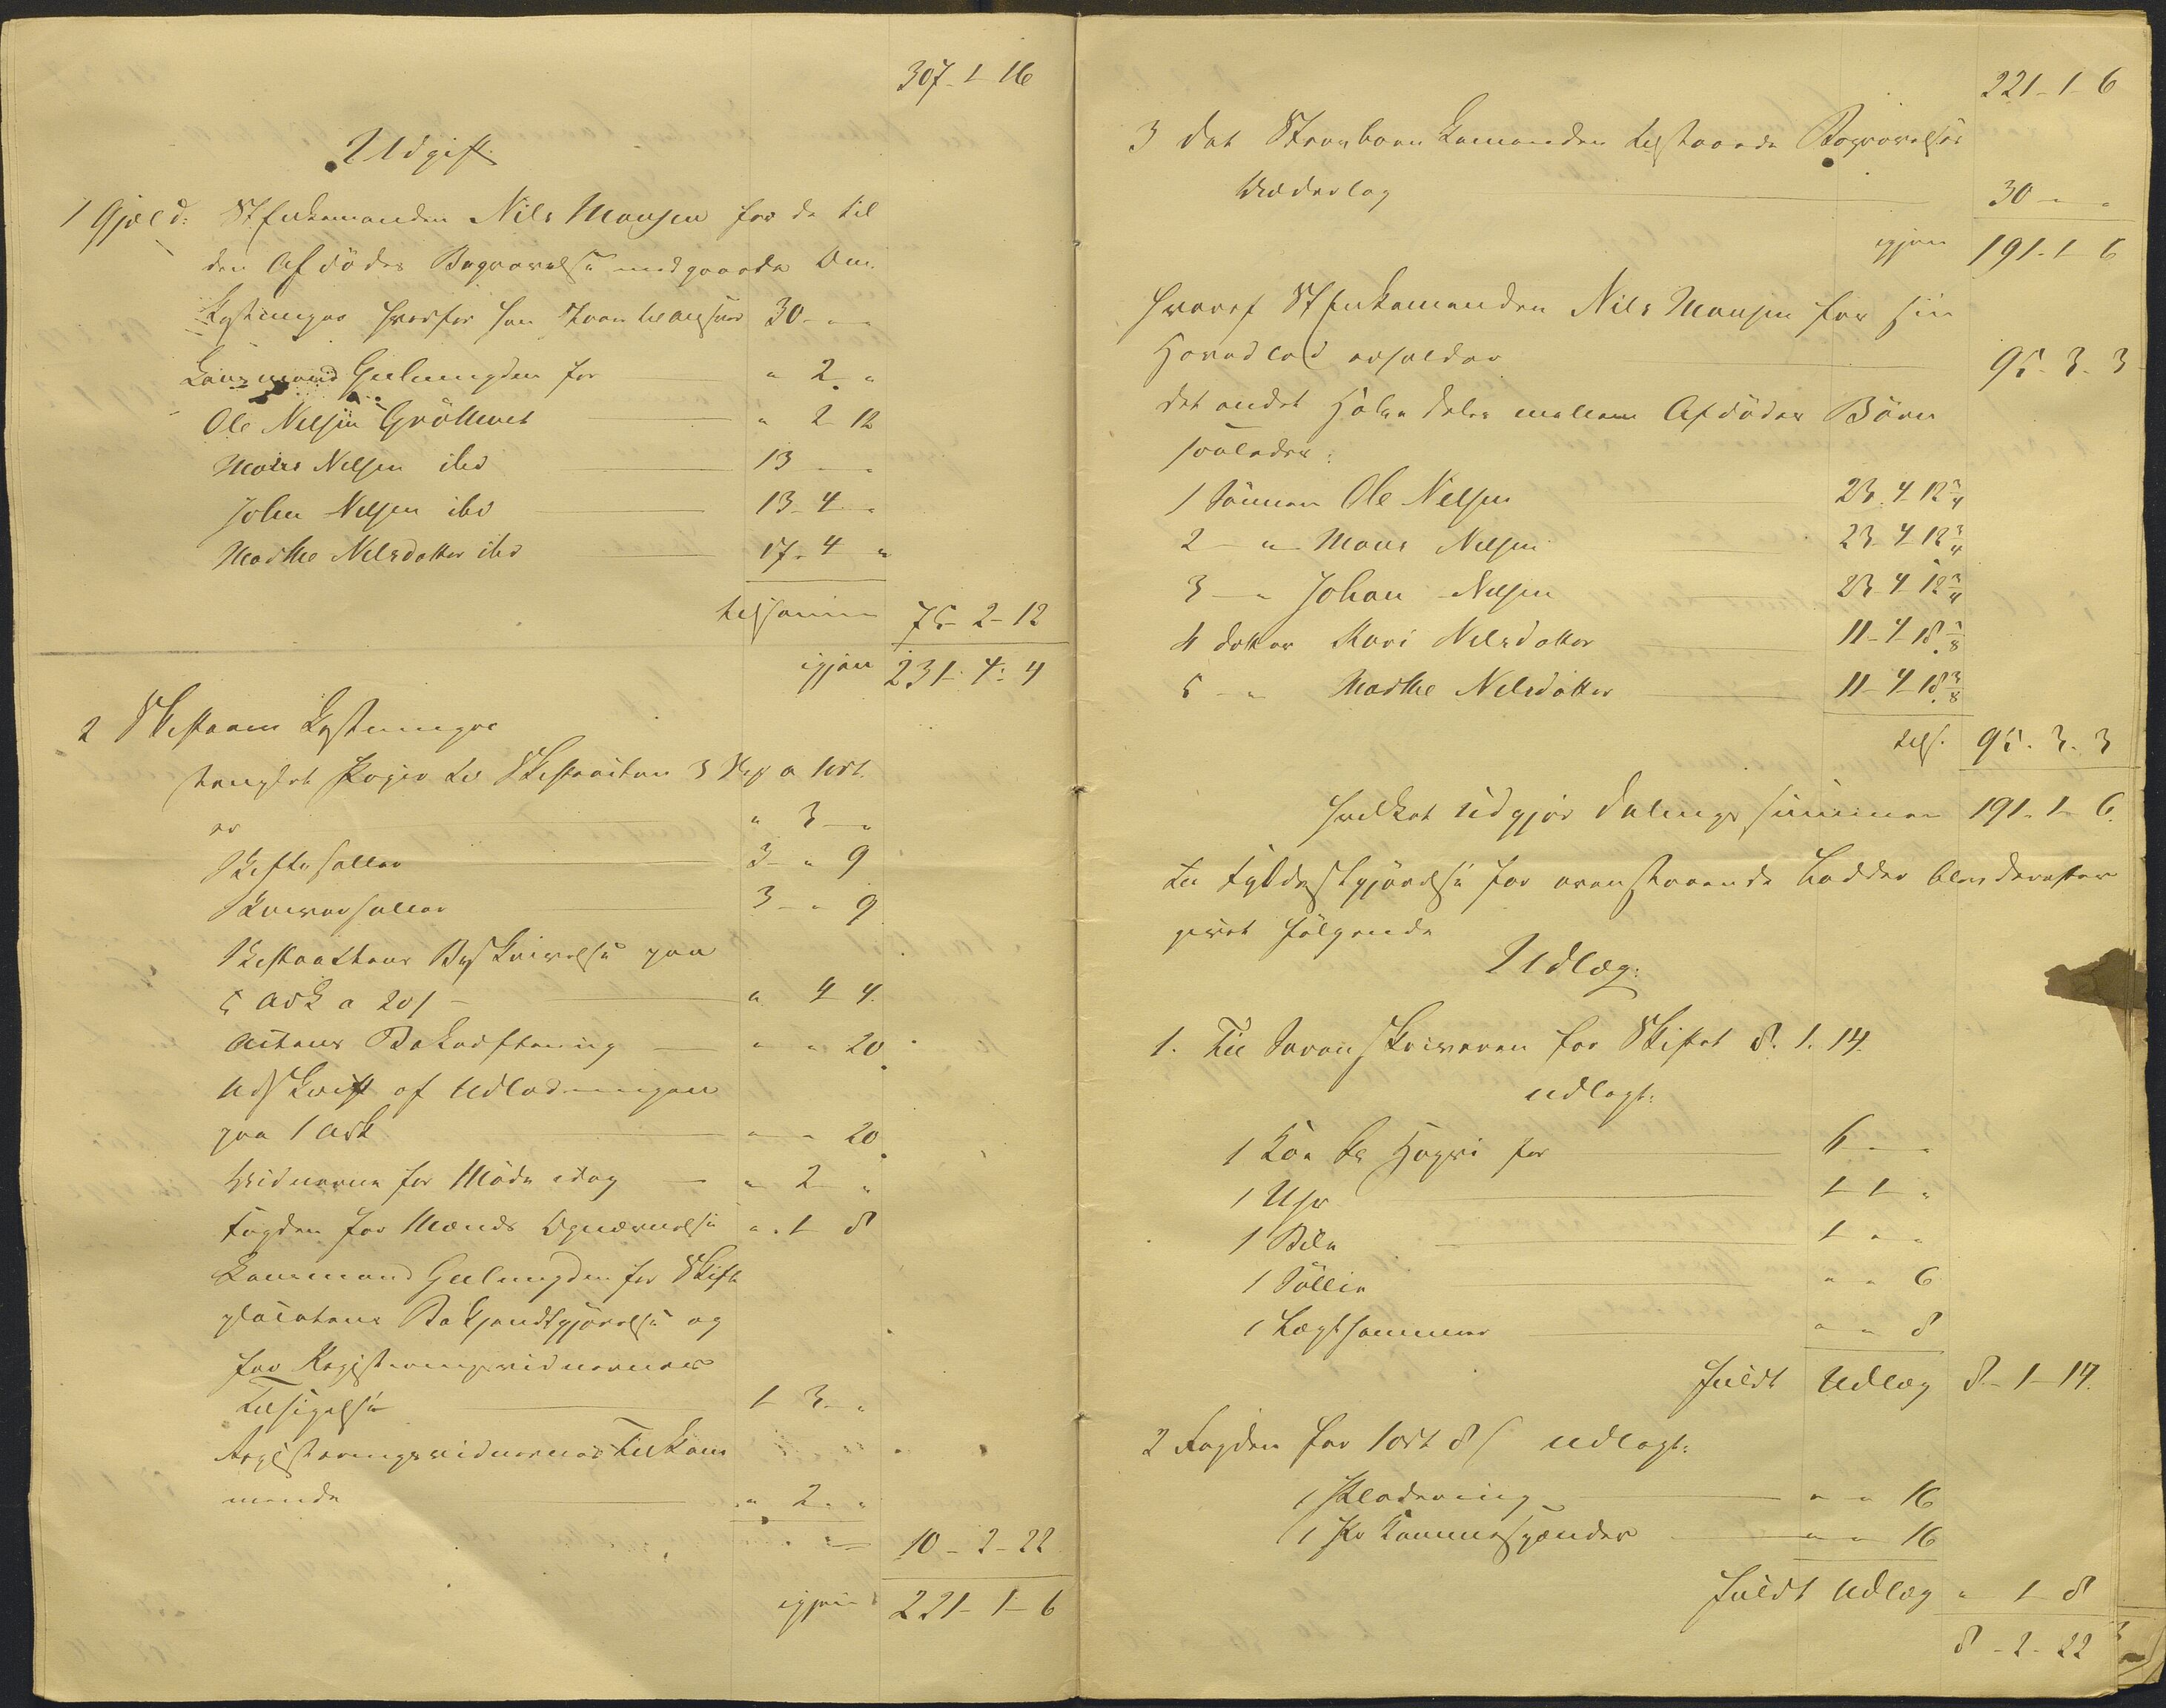 307 - 1 - 16
Udgift
1 Gjæld: Stfenkemanden Nils Monsen for de til
den Afdödes Begravelse medgaaede Om-
kostninger hvorfor han
30 - " - "
Lensmand Gulingden for " 2 - "
Ole Nelsen Gröttveit " 2 - 12
Mons Nelsen ibd 13 - " - "
Johan Nelsen ibd 13 - 4 - "
Marthe Nelsdatter ibd 17 - 4 - "
tilsamen 75 - 2 - 12
igjen 231 - 4 - 4
2 Skiftets Kostninger
stemplet Papir til Skifteacten 3 a 1ort
er " 3 - "
Skiftesallar 3 - " 9
Skriversallar 3 - " 9
Skifteactens Beskrivelse paa
5 Ark a 20 ſ " 4 4
Actens Bekræftning " " 20
Udskrift af Udlodningen
paa 1 Ark " " 20
Vidnerne for Möde idag " 2 "
Fogden for Mænds Opnævnelse " 1 8
Lensmand Gulingden for Skifte-
placatens Bekjendtgjörelse og
for Registreringsvidnernes
Tilsigelse 1 3 "
Registreringsvidnernes Tilkom-
mende " 2 "
10 - 2 - 22
igjen 221 - 1 - 6
221 - 1 - 6
3 det Stervboen Enkemanden tilstaaede Begravelses
Vederlag 30 - " - "
igjen 191 - 1 - 6
hvoraf Enkemanden Nils Monsen for sin
Hovedlod erholder 95 - 3 - 3
det andet Halve deles mellem Afdödes Börn
saaledes:
1 Sönnen Ole Nelsen 23 4 18 3/4
2 - " - Mons Nelsen 23 4 18 3/4
3 - " Johan Nelsen 23 4 18 3/4
4 datter Kari Nelsdatter 11 - 4 - 18 3/8
5 - " Marthe Nelsdatter 11 - 4 - 18 3/8
tils. 95 - 3 - 3
hvilket Udgjör delings summen 191 - 1 - 6
til Fyldestgjörelse for ovenstaaende Lodder blev derefter
gjort fölgende
Udlæg:
1. Til Sorenskriveren for Skiftet 8. 1. 14.
udlagt:
1 Koe for 6 - " - "
1 1 1 "
1 Bela 1 " "
1 Söllie " " 6
1 Lægthammer " " 8
fuldt Udlæg 8 - 1 - 14
2 Fogden for 1ort 8 ſ udlagt:
1 " " 16
1 Pr " " 16
fuldt Udlæg " 1 8
8 - 2 - 22